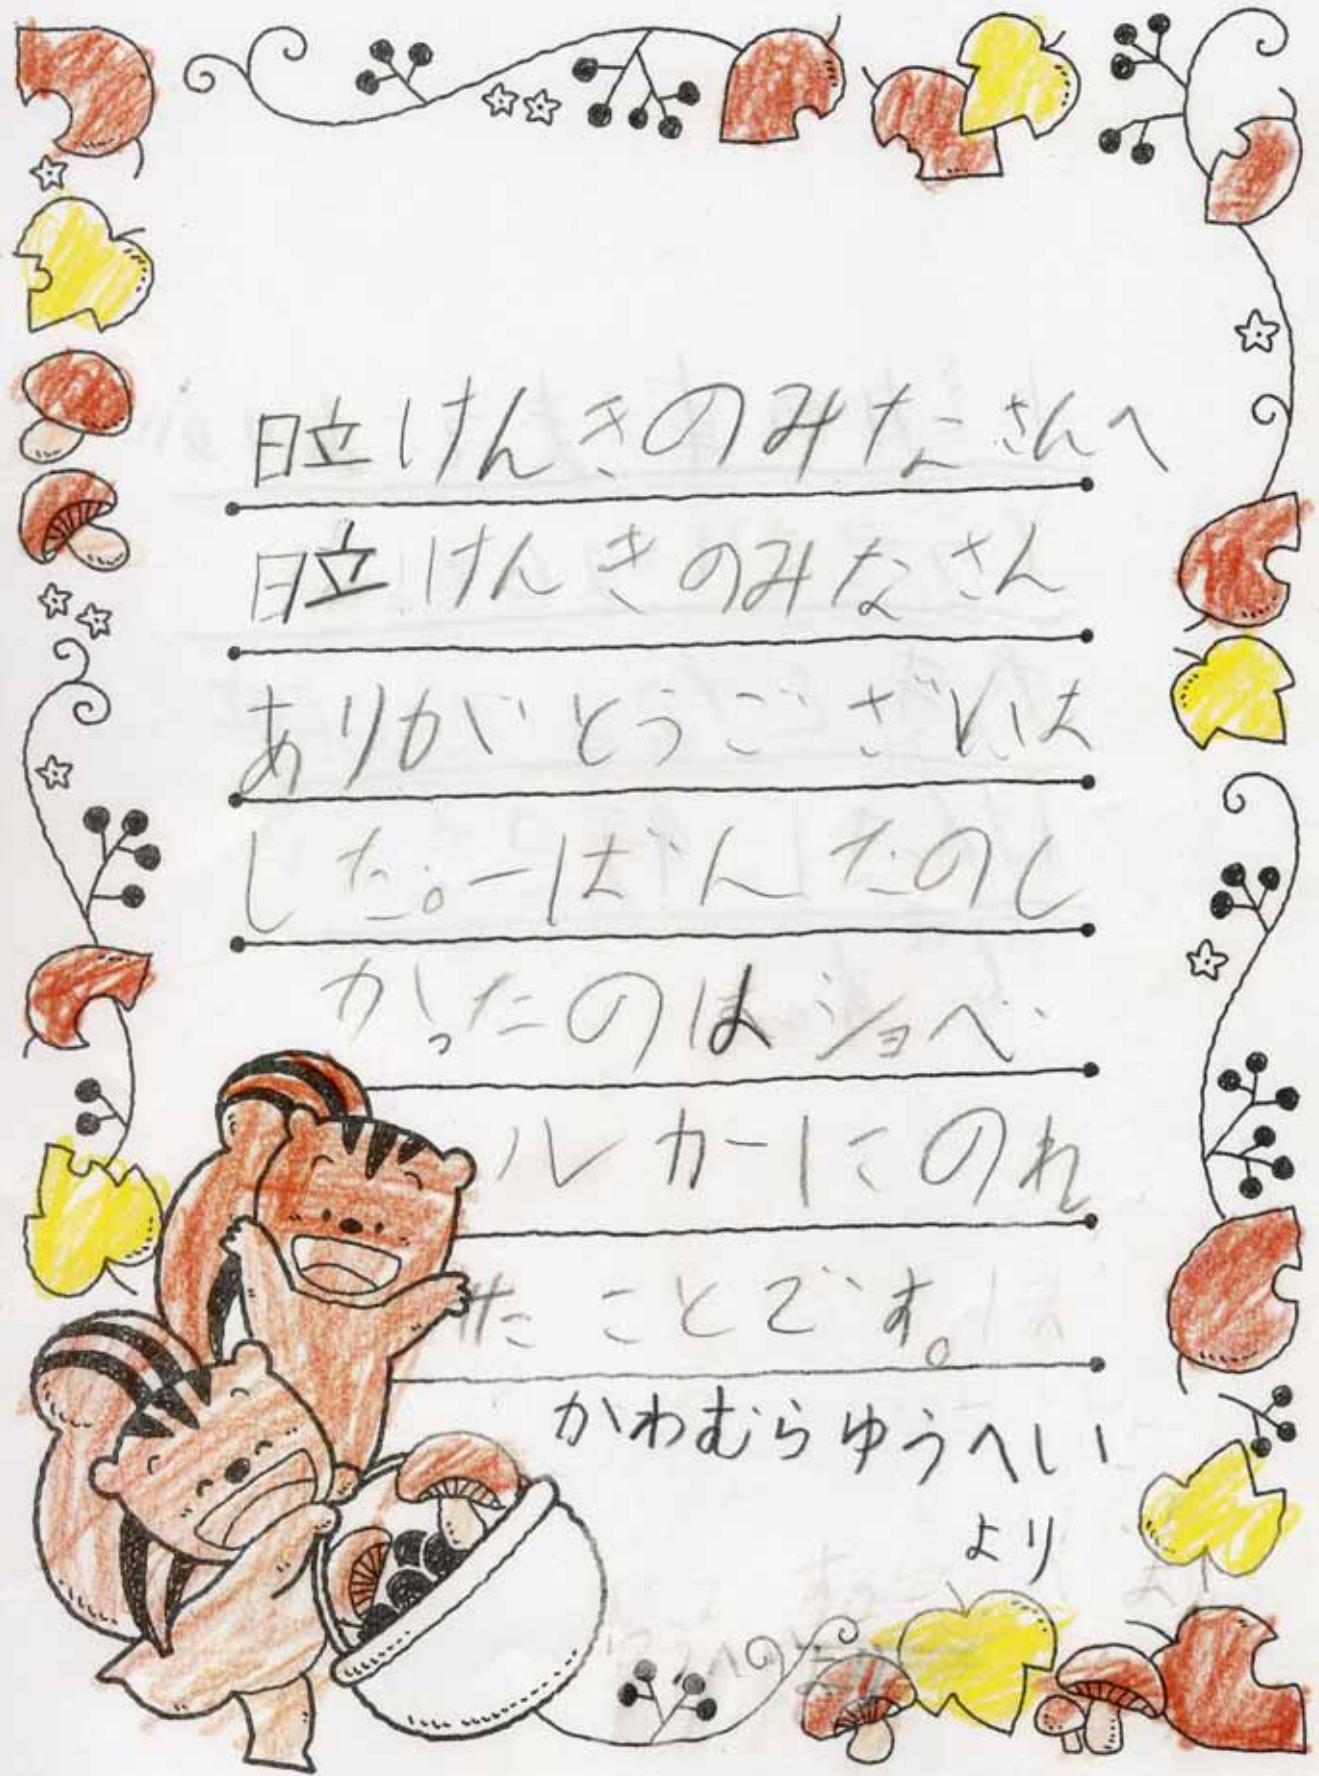 日立けんきのみなさんへ
日立けんきのみなさん
ありがとうございま
した。一ばんたのし
かったのはショベ
ルカーにのれ
たことです。
かわむらゆうへい
より